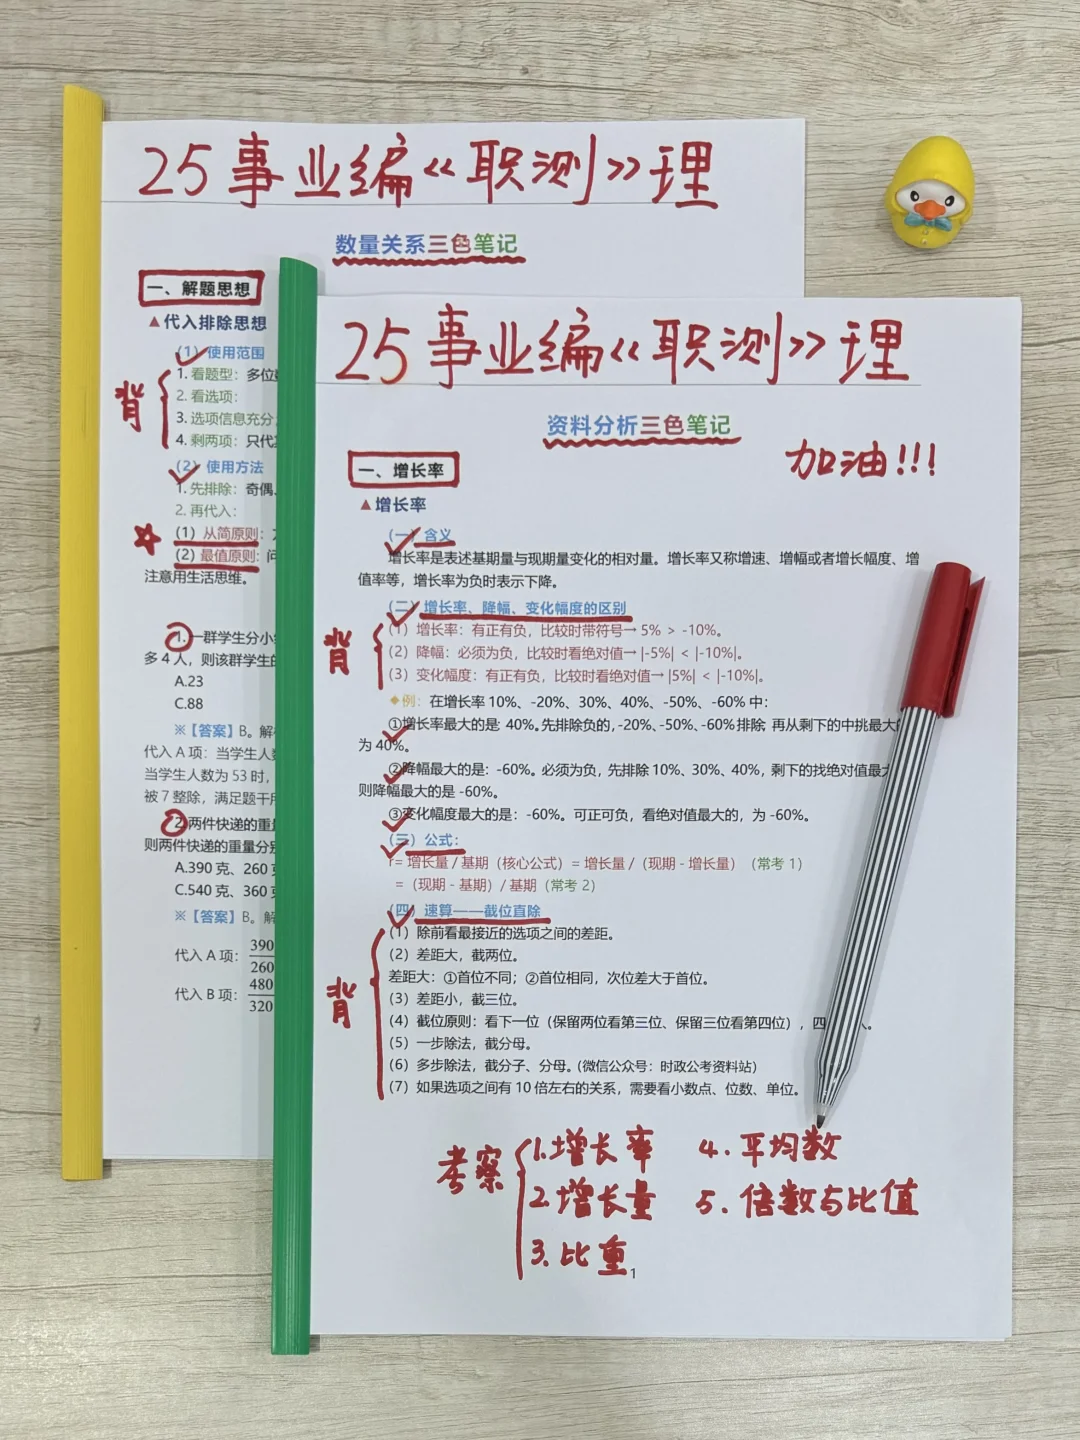 25事业编《职测》理
数量关系三色笔记
一、解题思想
▲代入排除思想
(1) 使用范围
背
1. 看题型：多位
2. 看选项：
3. 选项信息充分
4. 剩两项：只代
(2) 使用方法
1. 先排除：奇偶、
2. 再代入：
(1) 从简原则：
(2) 最值原则：问
注意用生活思维。
1. 一群学生分小
多 4 人，则该群学生的
A.23
C.88
※【答案】B。解
代入 A 项：当学生人
当学生人数为 53 时，
被 7 整除，满足题干
2. 两件快递的重
则两件快递的重量分别
A.390 克、260
C.540 克、360
※【答案】B。解
代入 A 项：390/260
代入 B 项：480/320
25事业编《职测》理
资料分析三色笔记
加油!!!
一、增长率
▲增长率
(一) 含义
增长率是表述基期量与现期量变化的相对量。增长率又称增速、增幅或者增长幅度、增
值率等，增长率为负时表示下降。
(二) 增长率、降幅、变化幅度的区别
背
(1) 增长率：有正有负，比较时带符号→ 5% > -10%。
(2) 降幅：必须为负，比较时看绝对值→ |-5%| < |-10%|。
(3) 变化幅度：有正有负，比较时看绝对值→ |5%| < |-10%|。
◆例：在增长率 10%、-20%、30%、40%、-50%、-60% 中：
①增长率最大的是 40%。先排除负的，-20%、-50%、-60% 排除 再从剩下的中挑最大
为 40%。
②降幅最大的是：-60%。必须为负，先排除 10%、30%、40%，剩下的找绝对值最大
则降幅最大的是 -60%。
③变化幅度最大的是：-60%。可正可负，看绝对值最大的，为 -60%。
(三) 公式：
r= 增长量 / 基期（核心公式）= 增长量 /（现期 - 增长量）（常考 1）
=（现期 - 基期）/ 基期（常考 2）
(四) 速算——截位直除
背
(1) 除前看最接近的选项之间的差距。
(2) 差距大，截两位。
差距大：①首位不同；②首位相同，次位差大于首位。
(3) 差距小，截三位。
(4) 截位原则：看下一位（保留两位看第三位、保留三位看第四位），四 人。
(5) 一步除法，截分母。
(6) 多步除法，截分子、分母。（微信公众号：时政公考资料站）
(7) 如果选项之间有 10 倍左右的关系，需要看小数点、位数、单位。
考察
1. 增长率
2. 增长量
3. 比重
4. 平均数
5. 倍数与比值
1